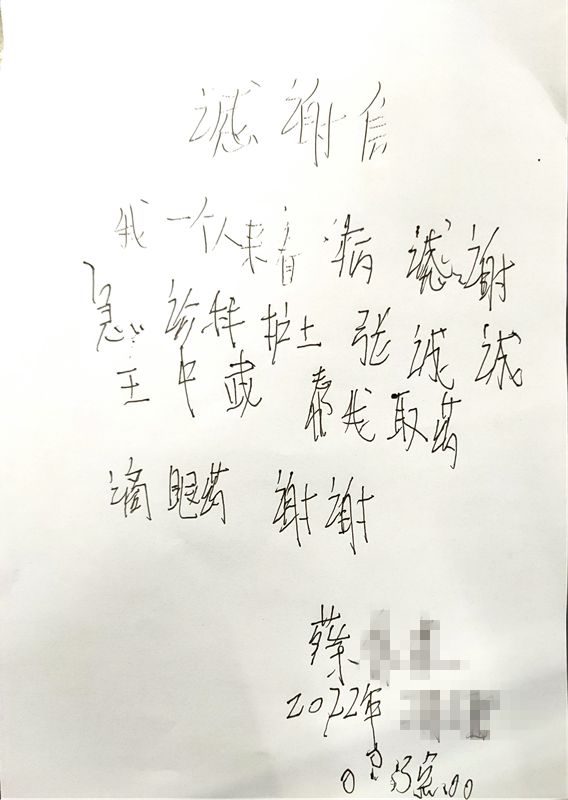 感谢信
我一个人来看病 感谢
急诊科护士 张诚诚
王中彧 帮我取药
滴眼药 谢谢
蔡
2022年